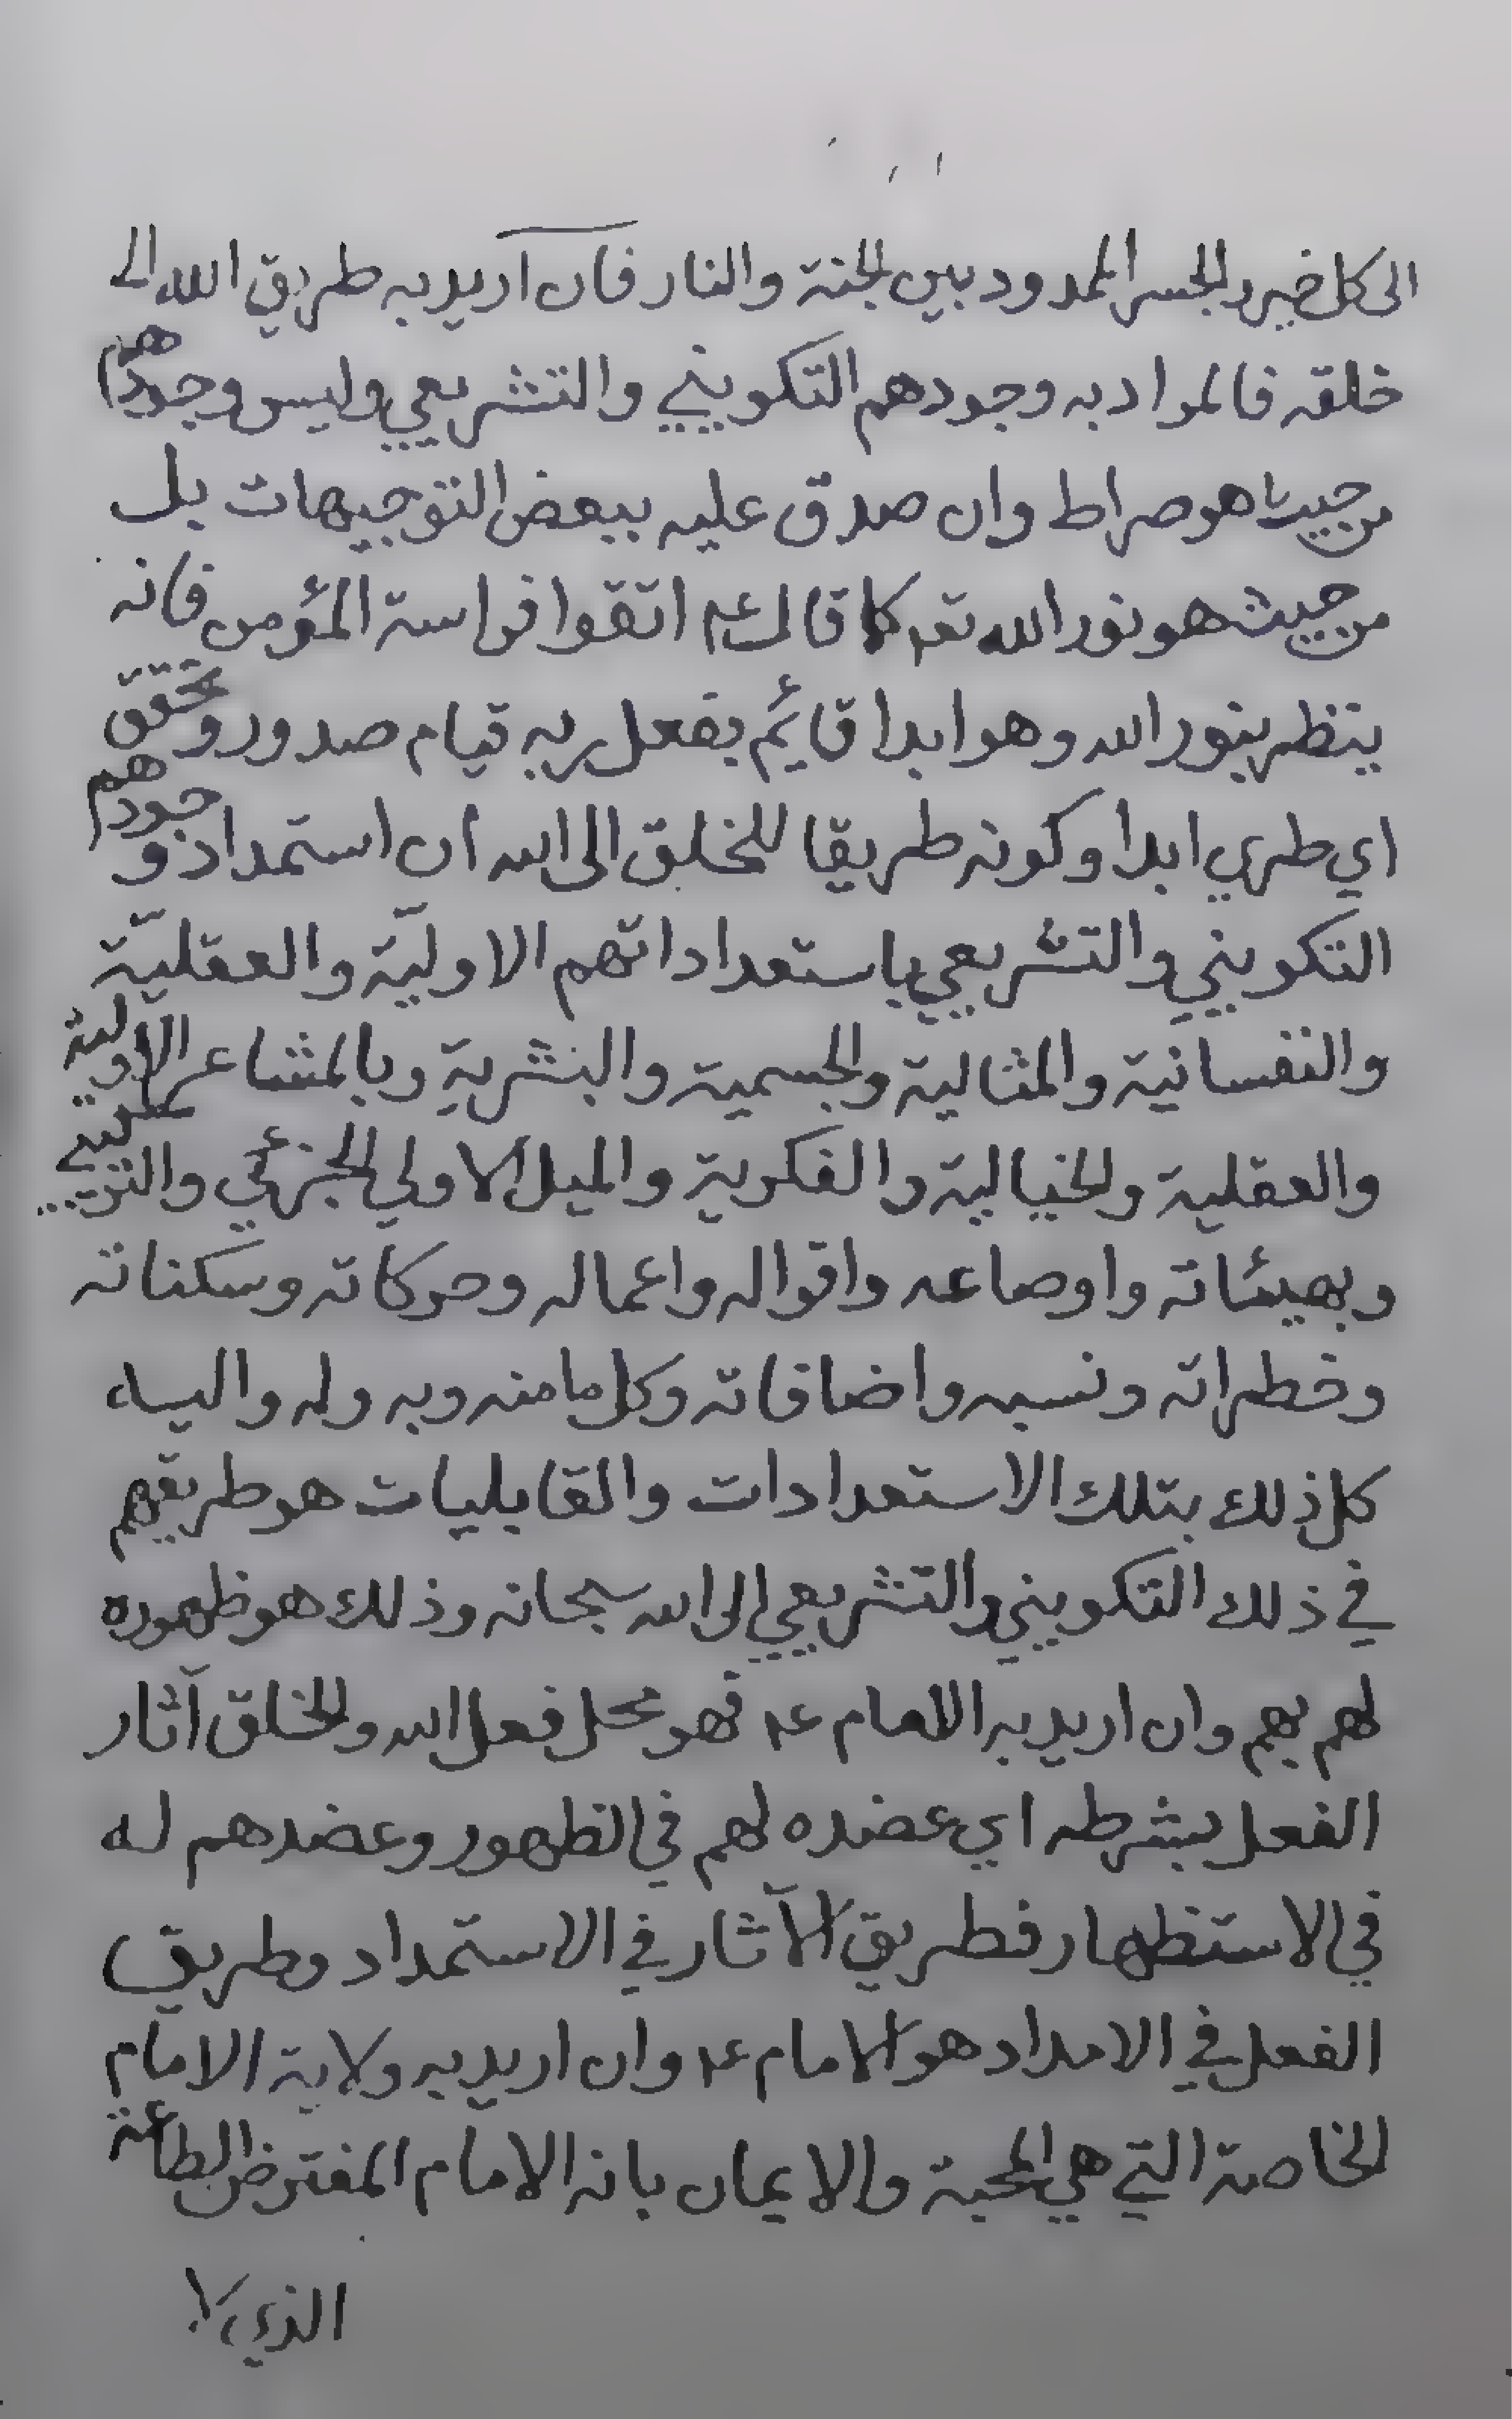 الى كل خير والجسر الممدود بين الجنة والنار فان اريد به طريق الله الى
خلقه فالمراد به وجودهم التكويني والتشريعي وليس وجودهم
من حيث هو صراط وان صدق عليه ببعض التوجيهات بل
من حيث هو نور الله تعـ كما قال عـ اتقوا فراسة المؤمن فانه
ينظر بنور الله وهو ابدا قائم بفعل ربه قيام صدور وتحقق
اي طري ابدا وكونه طريقا للخلق الى الله ان استمداد وجودهم
التكويني والتشريعي باستعداداتهم الاوليّة والعقليّة
والنفسانية والمثالية والجسمية والبشرية وبالمشاعر الاولية
والعقلية والخيالية والفكرية والميل الاولي الجزئي والتركيبي
وبهيئاته واوضاعه واقواله واعماله وحركاته وسكناته
وخطراته ونسبه واضافاته وكل ما منه وبه وله واليه
كل ذلك بتلك الاستعدادات والقابليات هو طريقهم
في ذلك التكويني والتشريعي الى الله سبحانه وذلك هو ظهوره
لهم بهم وان اريد به الامام عـ فهو محل فعل الله والخلق آثار
الفعل بشرطه اي عضده لهم في الظهور وعضدهم له
في الاستظهار فطريق الآثار في الاستمداد وطريق
الفعل في الامداد هو الامام عـ وان اريد به ولاية الامام
الخاصة التي هي المحبة والايمان بانه الامام المفترض الطاعة
الذي لا